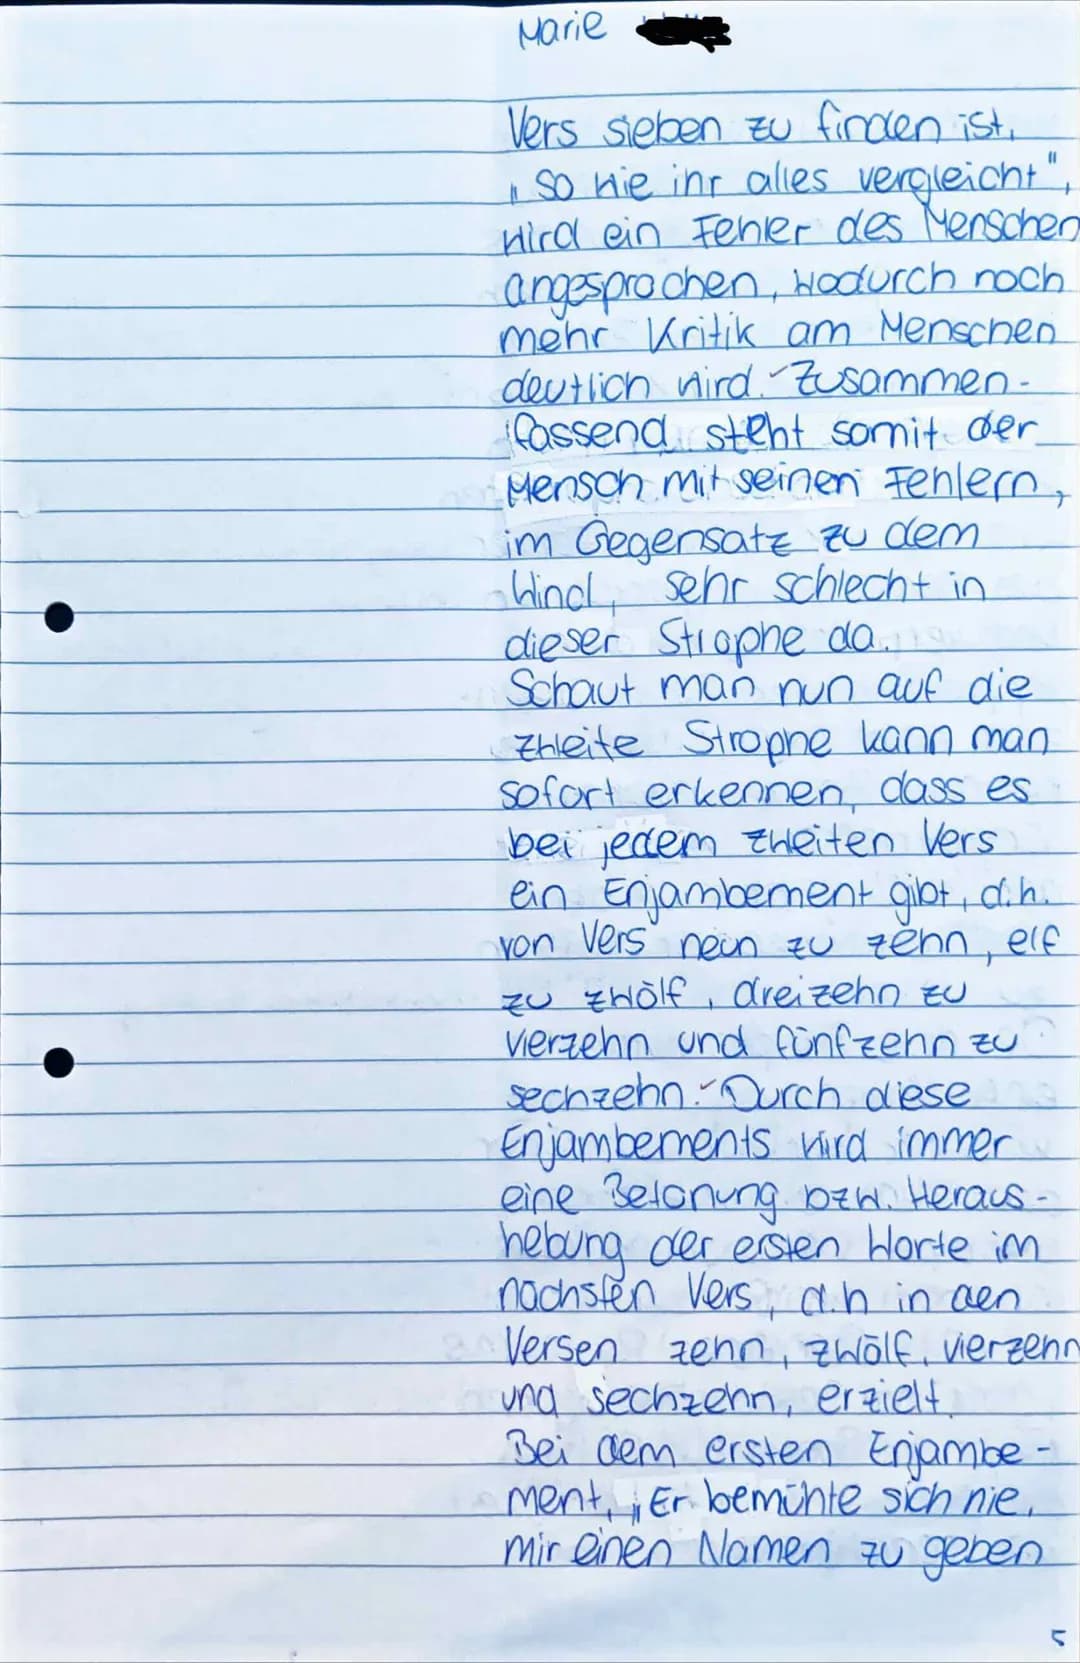 Marie
Vers sieben zu finden ist,
„so wie ihr alles vergleicht",
wird ein Fehler des Menschen
angesprochen, wodurch noch
mehr Kritik am Menschen
deutlich wird. Zusammen-
fassend steht somit der
Mensch mit seinen Fehlern,
im Gegensatz zu dem
Wind, sehr schlecht in
dieser Strophe da.
Schaut man nun auf die
zweite Strophe kann man
sofort erkennen, dass es
bei jedem zweiten Vers
ein Enjambement gibt, d.h.
von Vers neun zu zehn, elf
zu zwölf, dreizehn zu
vierzehn und fünfzehn zu
sechzehn. Durch diese
Enjambements wird immer
eine Betonung bzw. Heraus-
hebung der ersten Worte im
nächsten Vers, d.h in den
Versen zehn, zwölf, vierzehn
und sechzehn, erzielt.
Bei dem ersten Enjambe-
ment, „Er bemühte sich nie,
mir einen Namen zu geben
5